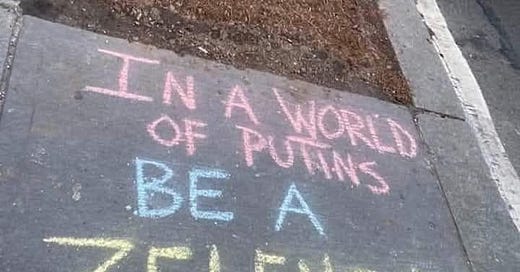 IN A WORLD
OF PUTINS
BE A